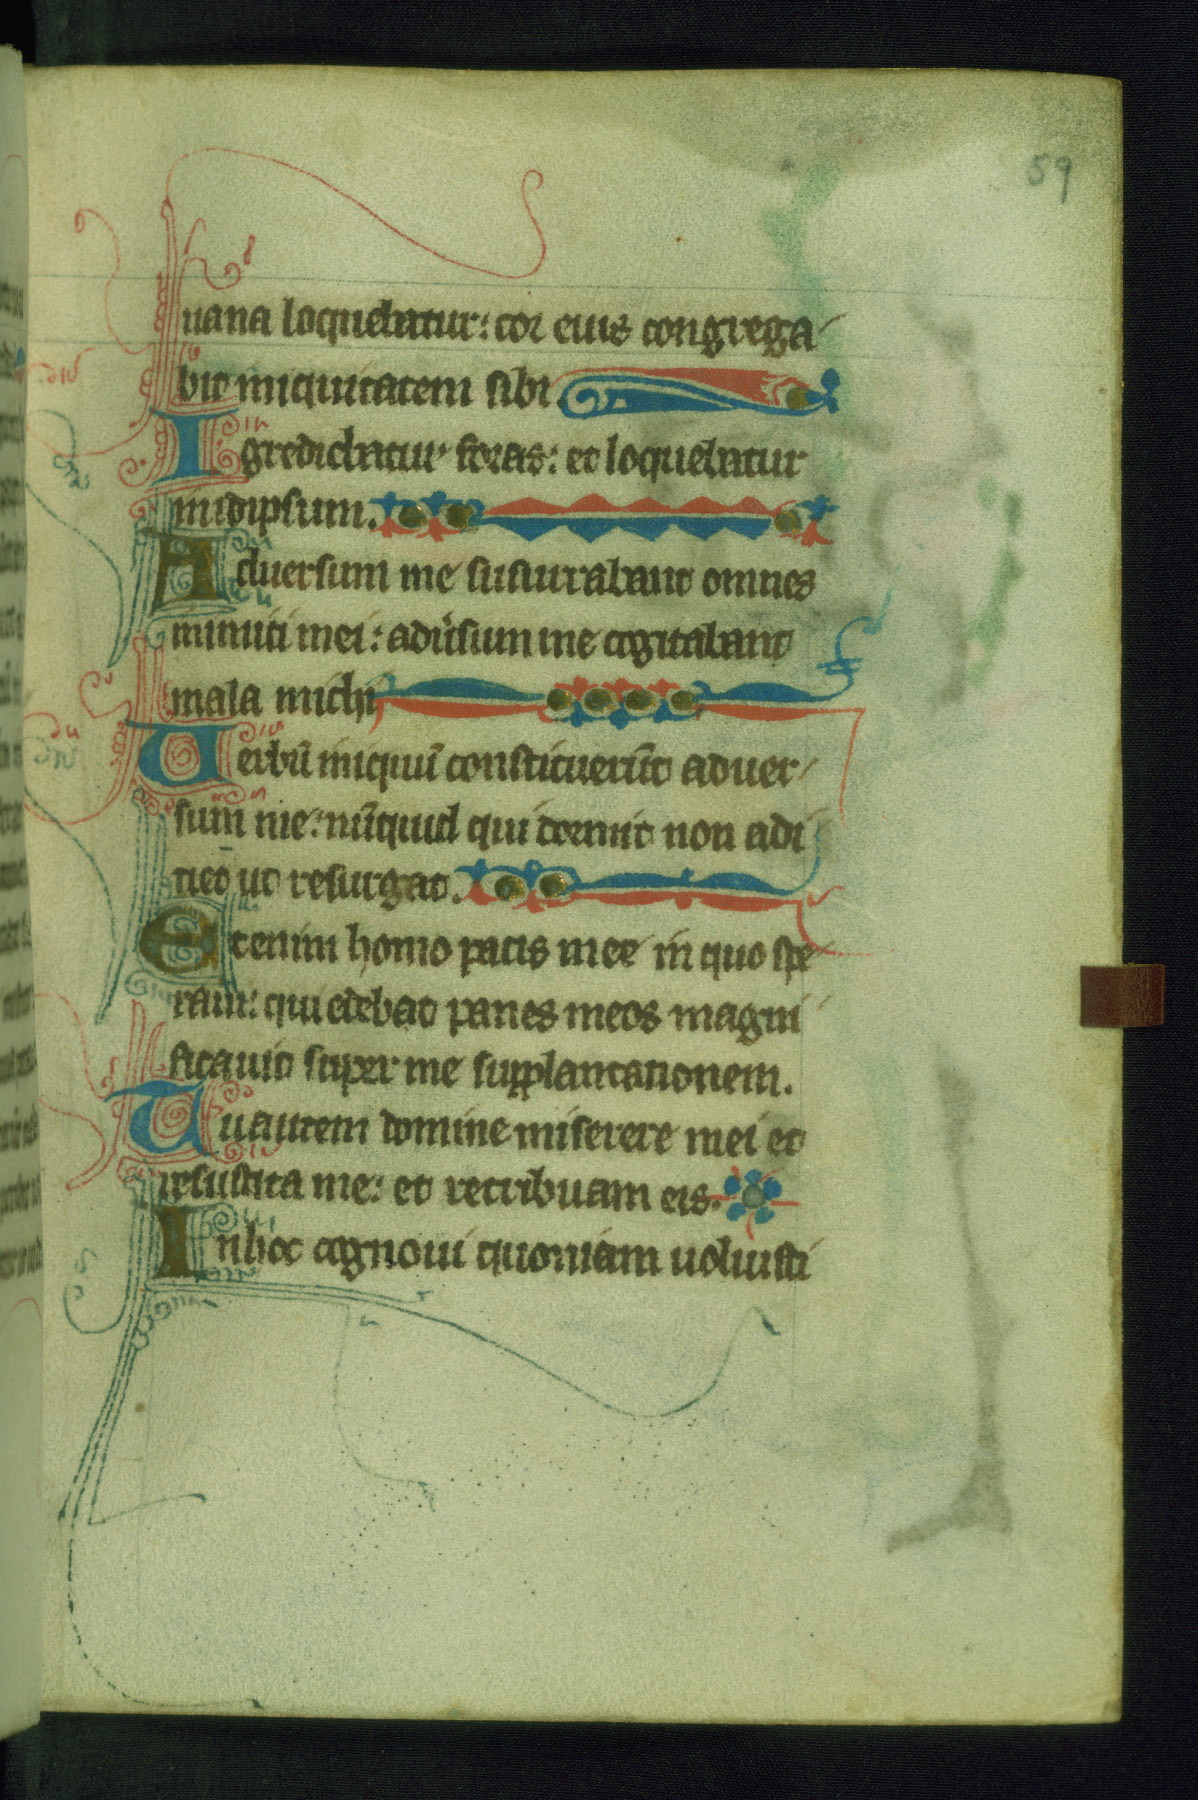 59
uana loquebatur: cor eius congrega
bit iniquitatem sibi.
Igrediebatur foras: et loquebatur
in idipsum.
Aduersum me susurrabant omnes
inimici mei: adũsum me cogitabant
mala michi
Uerbũ iniquũ constituerũt aduer
sum me: nũquid qui dormit non adi
ciet ut resurgat.
Etenim homo pacis mee in quo spe
raui: qui edebat panes meos magni
ficauit super me supplantationem.
Tu autem domine miserere mei et
resuscita me: et retribuam eis.
In hoc cognoui quoniam uoluisti